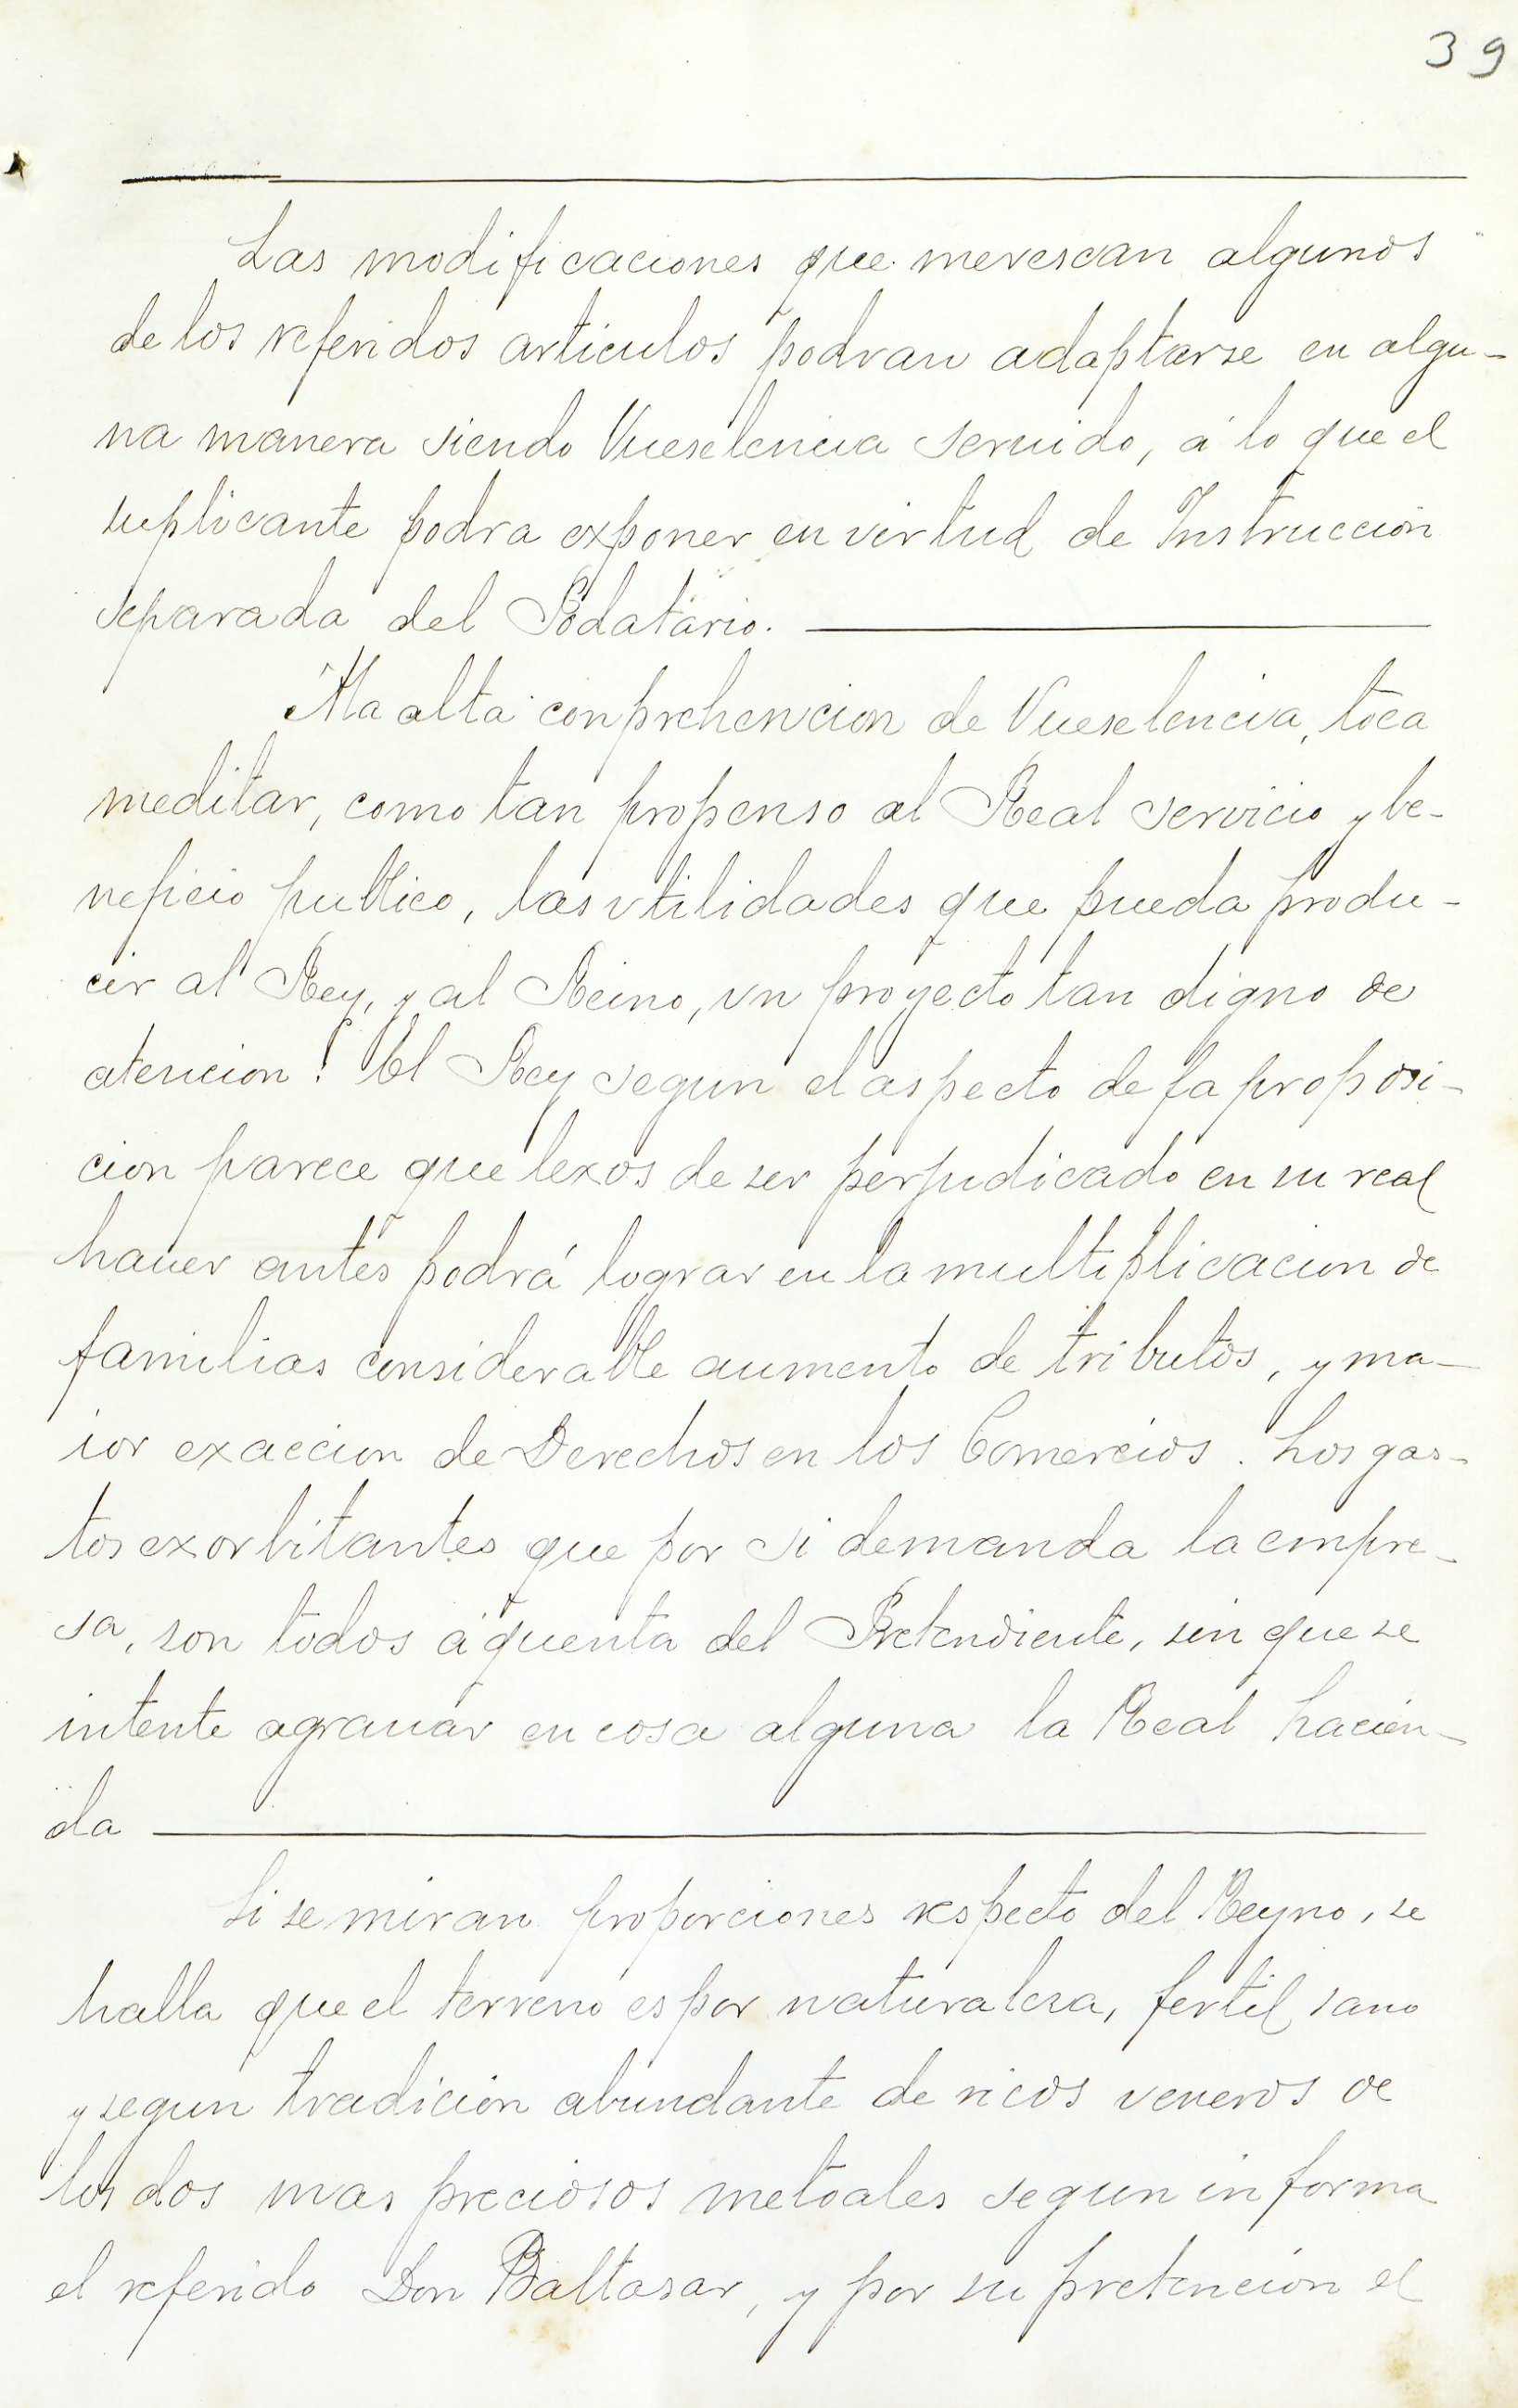 39
Las modificaciones que merescan algunos
de los referidos articulos podran adaptarse en algu-
na manera siendo Vueselencia seruido, á lo que el
suplicante podra exponer en virtud de Instruccion
separada del Podatario.
Ala alta conprehencion de Vueselencia, toca
meditar, como tan propenso al Real servicio y be-
neficio publico, las vtilidades que pueda produ-
cir al Rey, y al Reino, vn proyecto tan digno de
atencion! El Rey segun el aspecto de la proposi-
cion parece que lexos de ser perjudicado en su real
hauer antes podrá lograr en la multiplicacion de
familias considerable aumento de tributos, y ma-
ior exaccion de Derechos en los Comercios. Los gas-
tos exorbitantes que por si demanda la empre-
sa, son todos á quenta del Pretendiente, sin que se
intente agrauar en cosa alguna la Real hacien-
da
Si se miran proporciones respecto del Reyno, se
halla que el terreno es por naturalesa, fertil sano
y segun tradicion abundante de ricos veneros de
los dos mas preciosos metoales segun informa
el referido Don Baltasar, y por su pretencion el